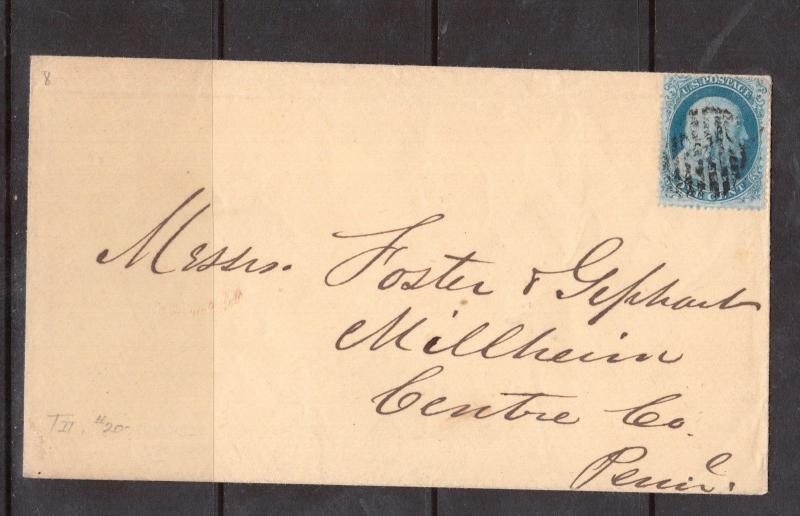 8
U.S. POSTAGE
ONE CENT
Messrs. Foster & Gephart
Millheim
Centre Co.
Penn.
T II, #20-